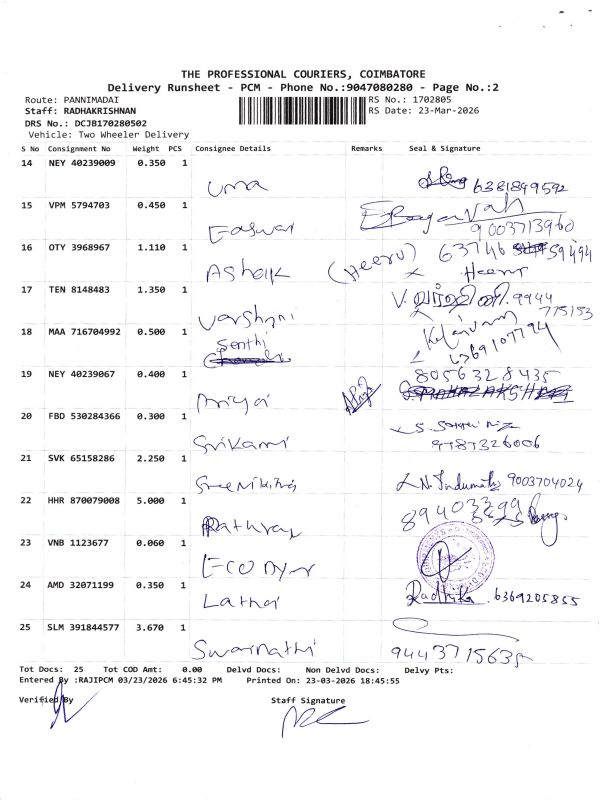 THE PROFESSIONAL COURIERS, COIMBATORE
Delivery Runsheet - PCM - Phone No.:9047080280 - Page No.:2
Route: PANNIMADAI
RS No.: 1702805
Staff: RADHAKRISHNAN
RS Date: 23-Mar-2026
DRS No.: DCJB170280502
Vehicle: Two Wheeler Delivery
S No Consignment No Weight PCS Consignee Details Remarks Seal & Signature
14 NEY 40239009 0.350 1
Uma 6381899592
15 VPM 5794703 0.450 1
Easwar 9003713960
16 OTY 3968967 1.110 1
Ashaik (Heeru) 63746 59494
Heeru
17 TEN 8148483 1.350 1
Varshni 9944
775153
18 MAA 716704992 0.500 1
Senthi
19 NEY 40239067 0.400 1
Priya 8056328435
20 FBD 530284366 0.300 1
Srikami
9787326006
21 SVK 65158286 2.250 1
N. Indumathi 9003704024
22 HHR 870079008 5.000 1
23 VNB 1123677 0.060 1
24 AMD 32071199 0.350 1
Latha Radhika 6369205855
25 SLM 391844577 3.670 1
Swarnathi 9443715635
Tot Docs: 25 Tot COD Amt: 0.00 Delvd Docs: Non Delvd Docs: Delvy Pts:
Entered By :RAJIPCM 03/23/2026 6:45:32 PM Printed On: 23-03-2026 18:45:55
Verified By Staff Signature